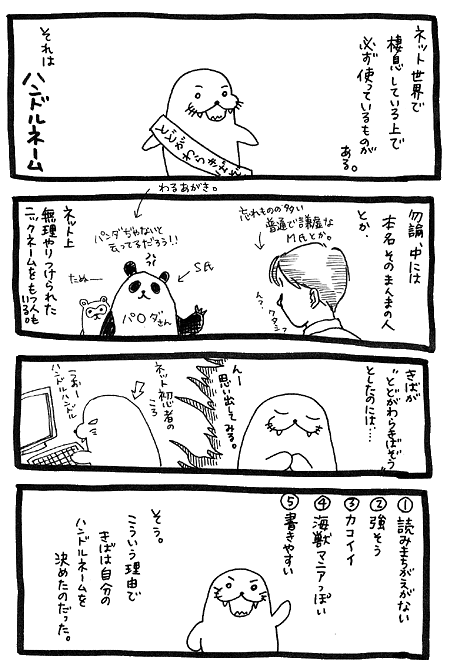 ネット世界で
棲息している上で
必ず使っているものが
ある。
それは
ハンドルネーム
とどがわらきばぞう
勿論、中には
本名そのまんまの人
とか、
忘れものの多い
普通で謙虚な
M氏とか。
んっ?
わるあがき。
パンダぢゃないと
云ってるだろう!!
S氏
パ〇ダさん
たぬー
ネット上
無理やりつけられた
ニックネームをもつ人も
いる。
きばが
"とどがわらきばぞう"
としたのには…
んー
思い出してみる。
ネット初心者の
ころ
うおー
ハンドルハンドル
①読みまちがえがない
②強そう
③カコイイ
④海獣マニアっぽい
⑤書きやすい
そう。
こういう理由で
きばは自分の
ハンドルネームを
決めたのだった。